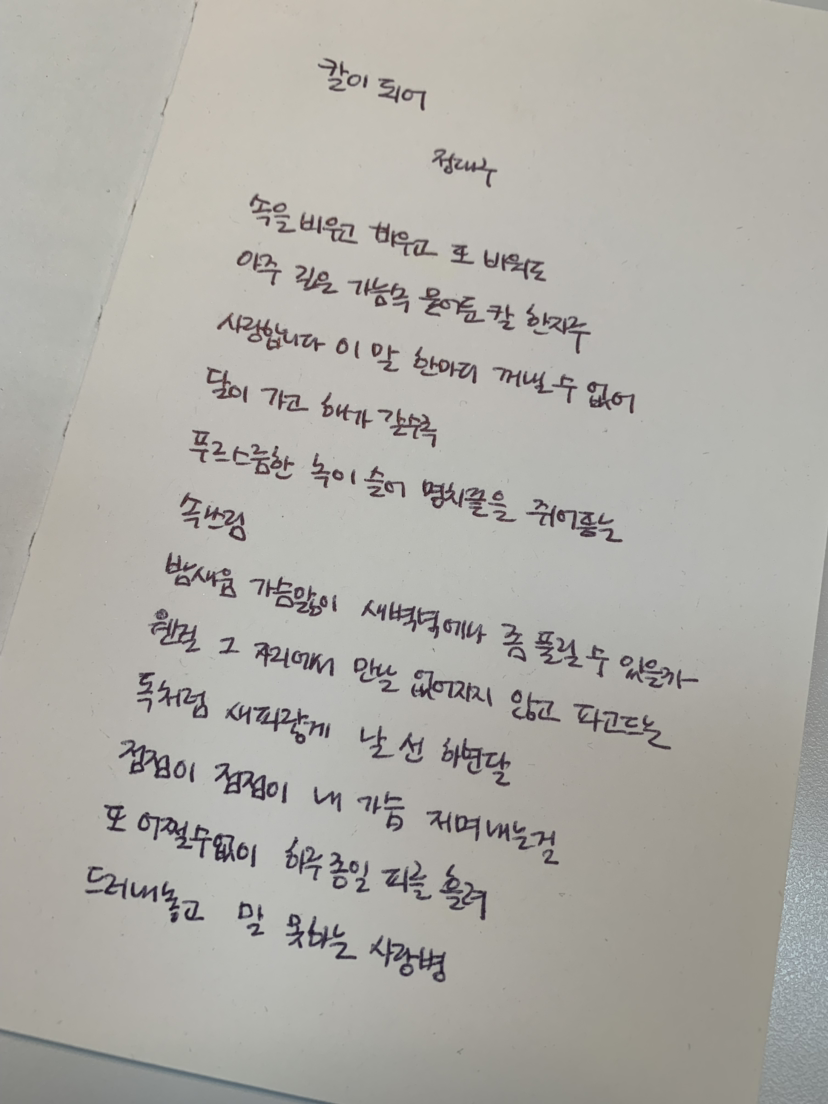 칼이 되어
정대구
속을 비우고 비우고 또 비워도
아주 깊은 가슴속 묻어둔 칼 한자루
사랑합니다 이 말 한마디 꺼낼 수 없어
달이 가고 해가 갈수록
푸르스름한 녹이 슬어 명치끝을 쥐어뜯는
속쓰림
밤새움 가슴앓이 새벽녘에나 좀 풀릴 수 있을까
웬걸 그 자리에서 만날 없어지지 않고 파고드는
독처럼 새파랗게 날 선 하현달
점점이 점점이 내 가슴 저며내는걸
또 어쩔수없이 하루종일 피를 흘려
드러내놓고 말 못하는 사랑병